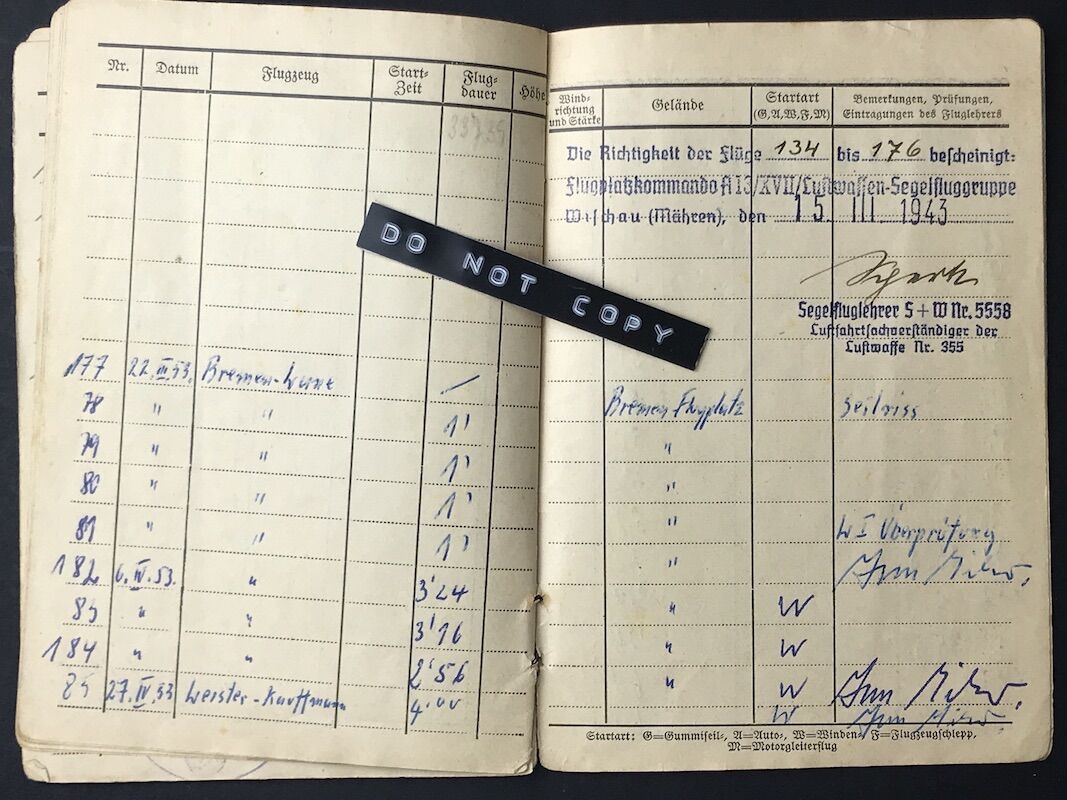 Nr. Datum Flugzeug Start-Zeit Flug-dauer Höhe
Wind-richtung und Stärke Gelände Startart (G,A,W,F,M) Bemerkungen, Prüfungen, Eintragungen des Fluglehrers
Die Richtigkeit der Flüge 134 bis 176 bescheinigt:
Flugplatzkommando A 13/XVII/Luftwaffen-Segelfluggruppe
Wischau (Mähren), den 15. III. 1943
Segelfluglehrer S+W Nr. 5558
Luftfahrtsachverständiger der
Luftwaffe Nr. 355
DO NOT COPY
177 22.III.53. Bremen- —
78 " " 1' Bremen Flugplatz Seilriss
79 " " 1' "
80 " " 1' "
81 " " 1' " W I Überprüfung
182 6.IV.53. " 3'24 "
83 " " 3'16 " W
184 " " 2'56 " W
85 27.IV.53 -Kauffmann 4'00 " W
W
Startart: G=Gummiseil-, A=Auto-, W=Winden-, F=Flugzeugschlepp,
M=Motorgleiterflug